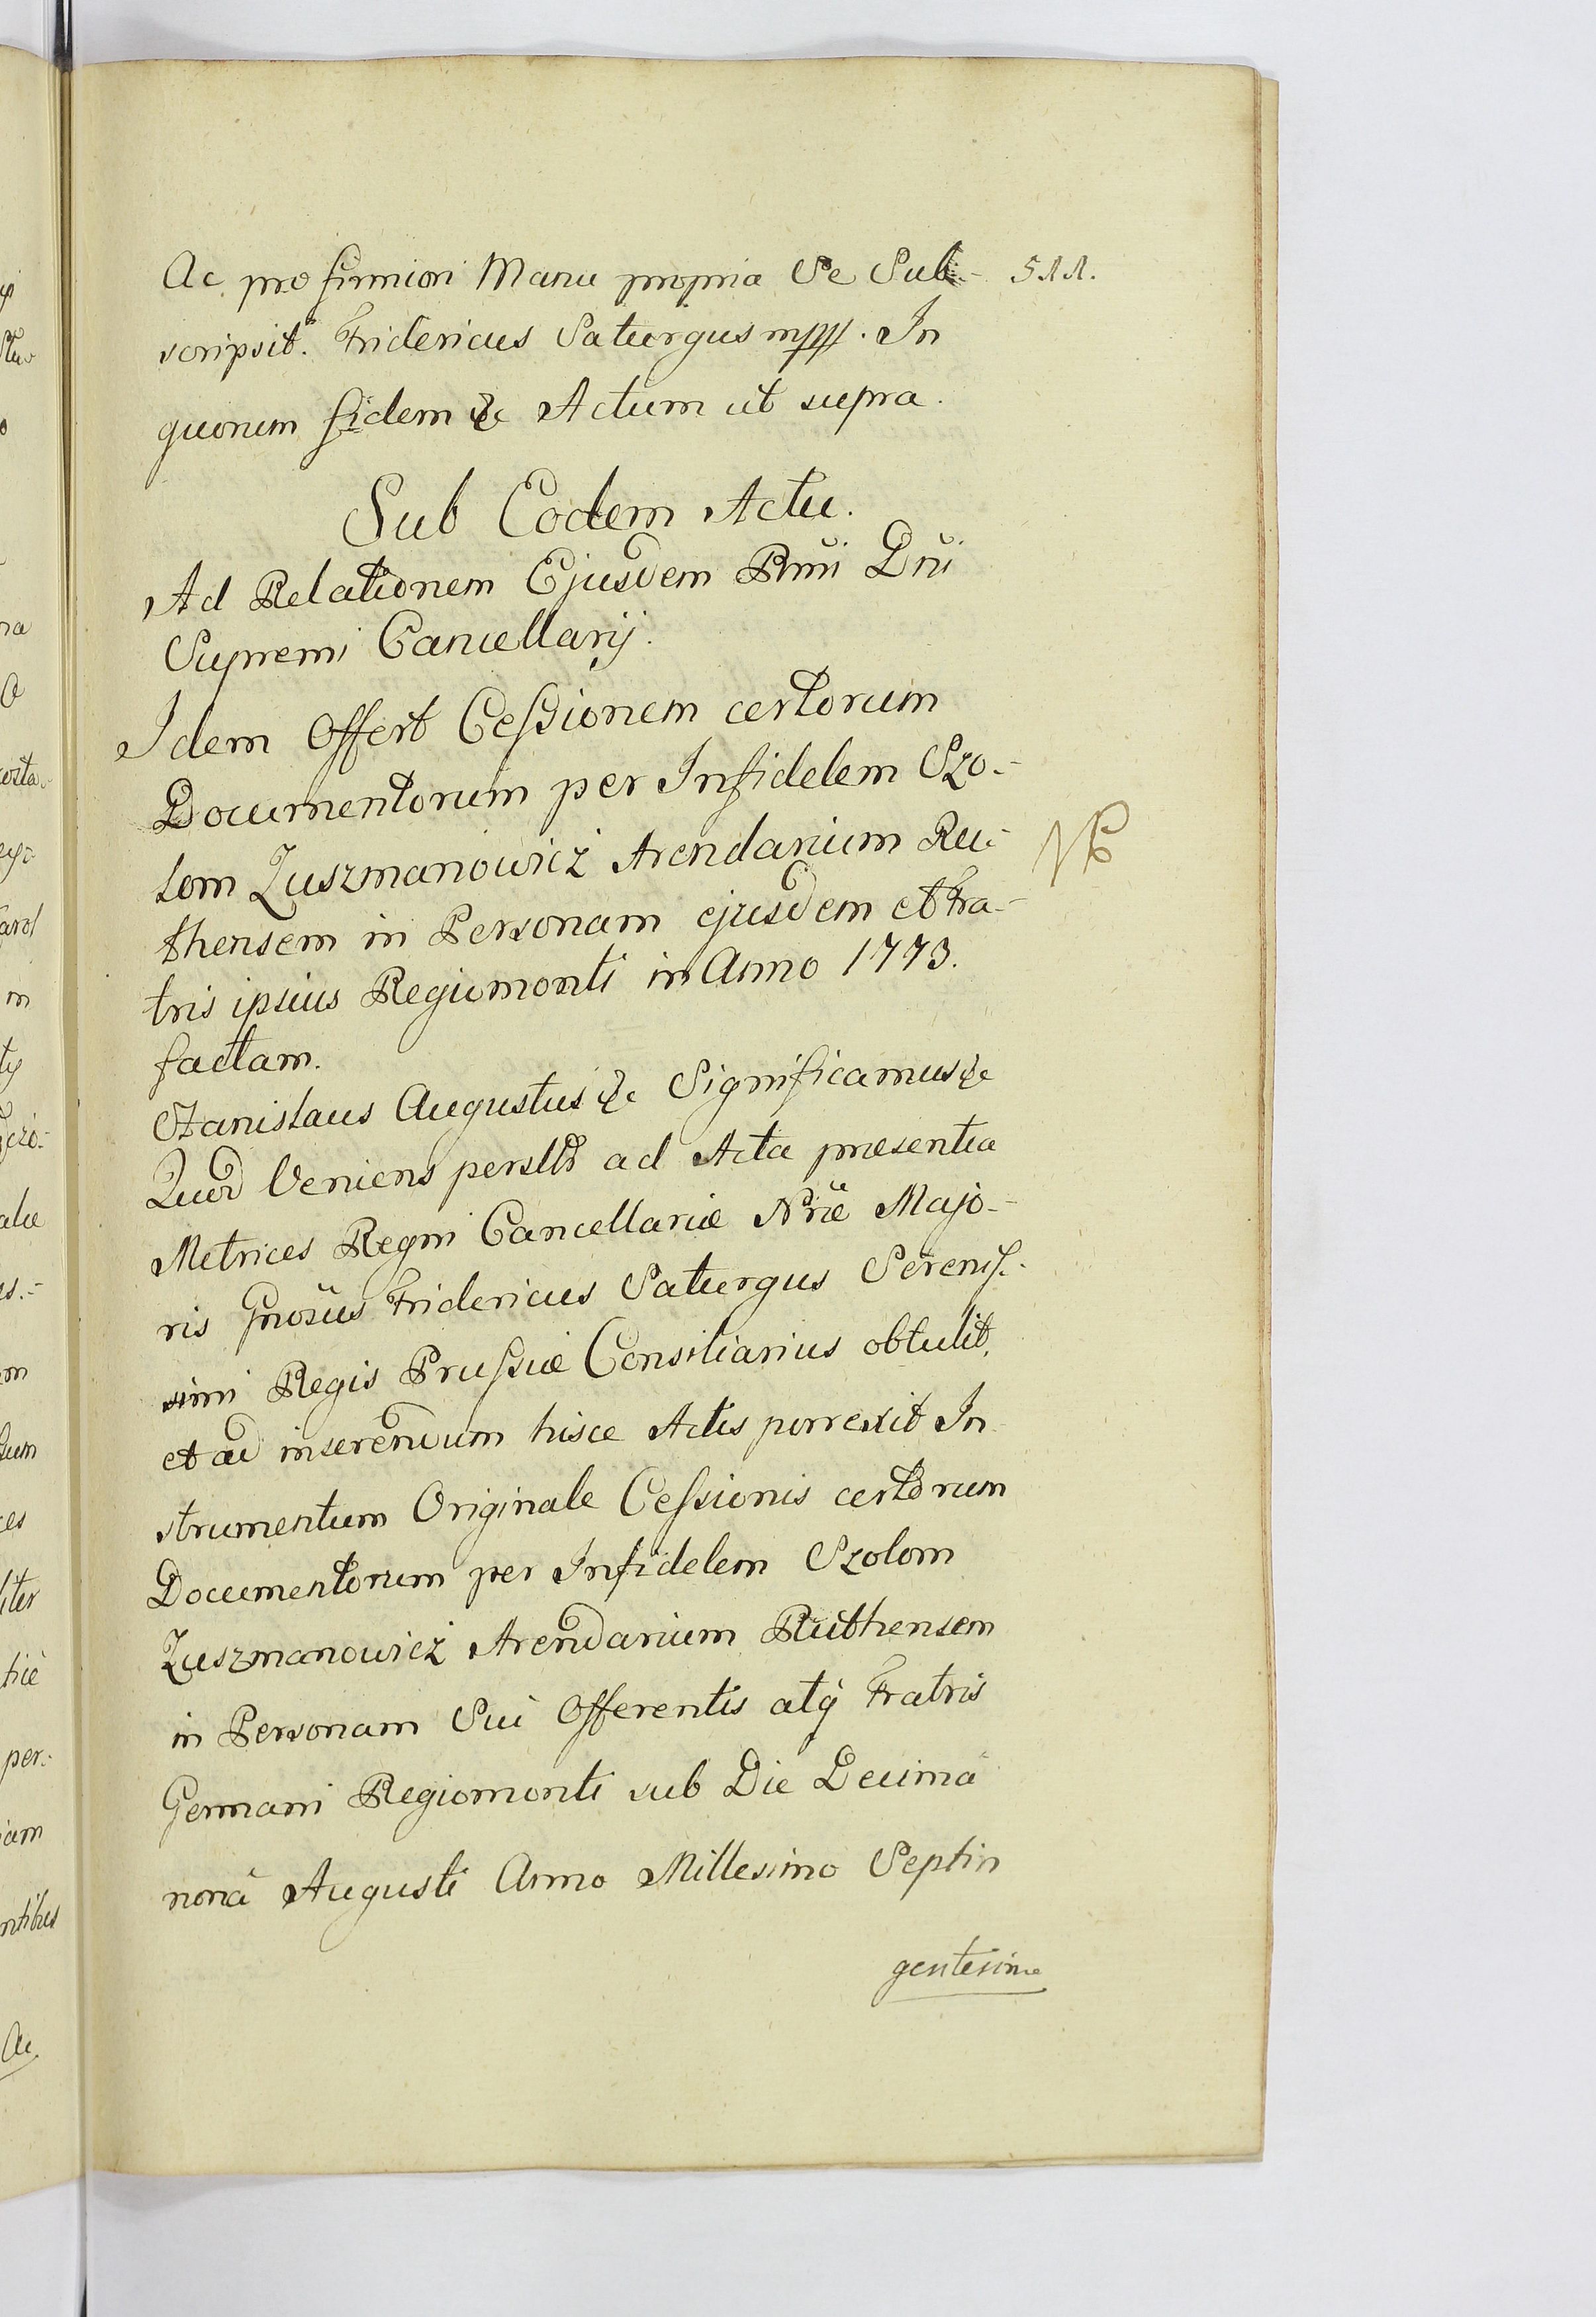 Ac pro firmiori Manu propria Se Sub- 511.
scripsit. Fridericus Saturgus mppp. In
quorum fidem &c Actum ut supra.
Sub Eodem Actu.
Ad Relationem Ejusdem Rmi Dni
Supremi Cancellarij.
Idem Offert Cessionem certorum
Documentorum per Infidelem Szo-
lom Zuszmanowicz Arendarium Ru-
NB
thensem in Personam ejusdem et Fra-
tris ipsius Regiomonti in Anno 1773.
factam.
Stanislaus Augustus &c Significamus &c
Quod Veniens persltr ad Acta praesentia
Metrices Regni Cancellariae Nrae Majo-
ris Gnosus Fridericus Saturgus Serenis-
simi Regis Prussiae Consiliarius obtulit,
et ad inserendum hisce Actis porrexit In
strumentum Originale Cessionis certorum
Documentorum per Infidelem Szolom
Zuszmanowicz Arendarium Ruthensem
in Personam Sui Offerentis atq Fratris
Germani Regiomonti sub Die Decima
nona Augusti Anno Millesimo Septin
gentesimo